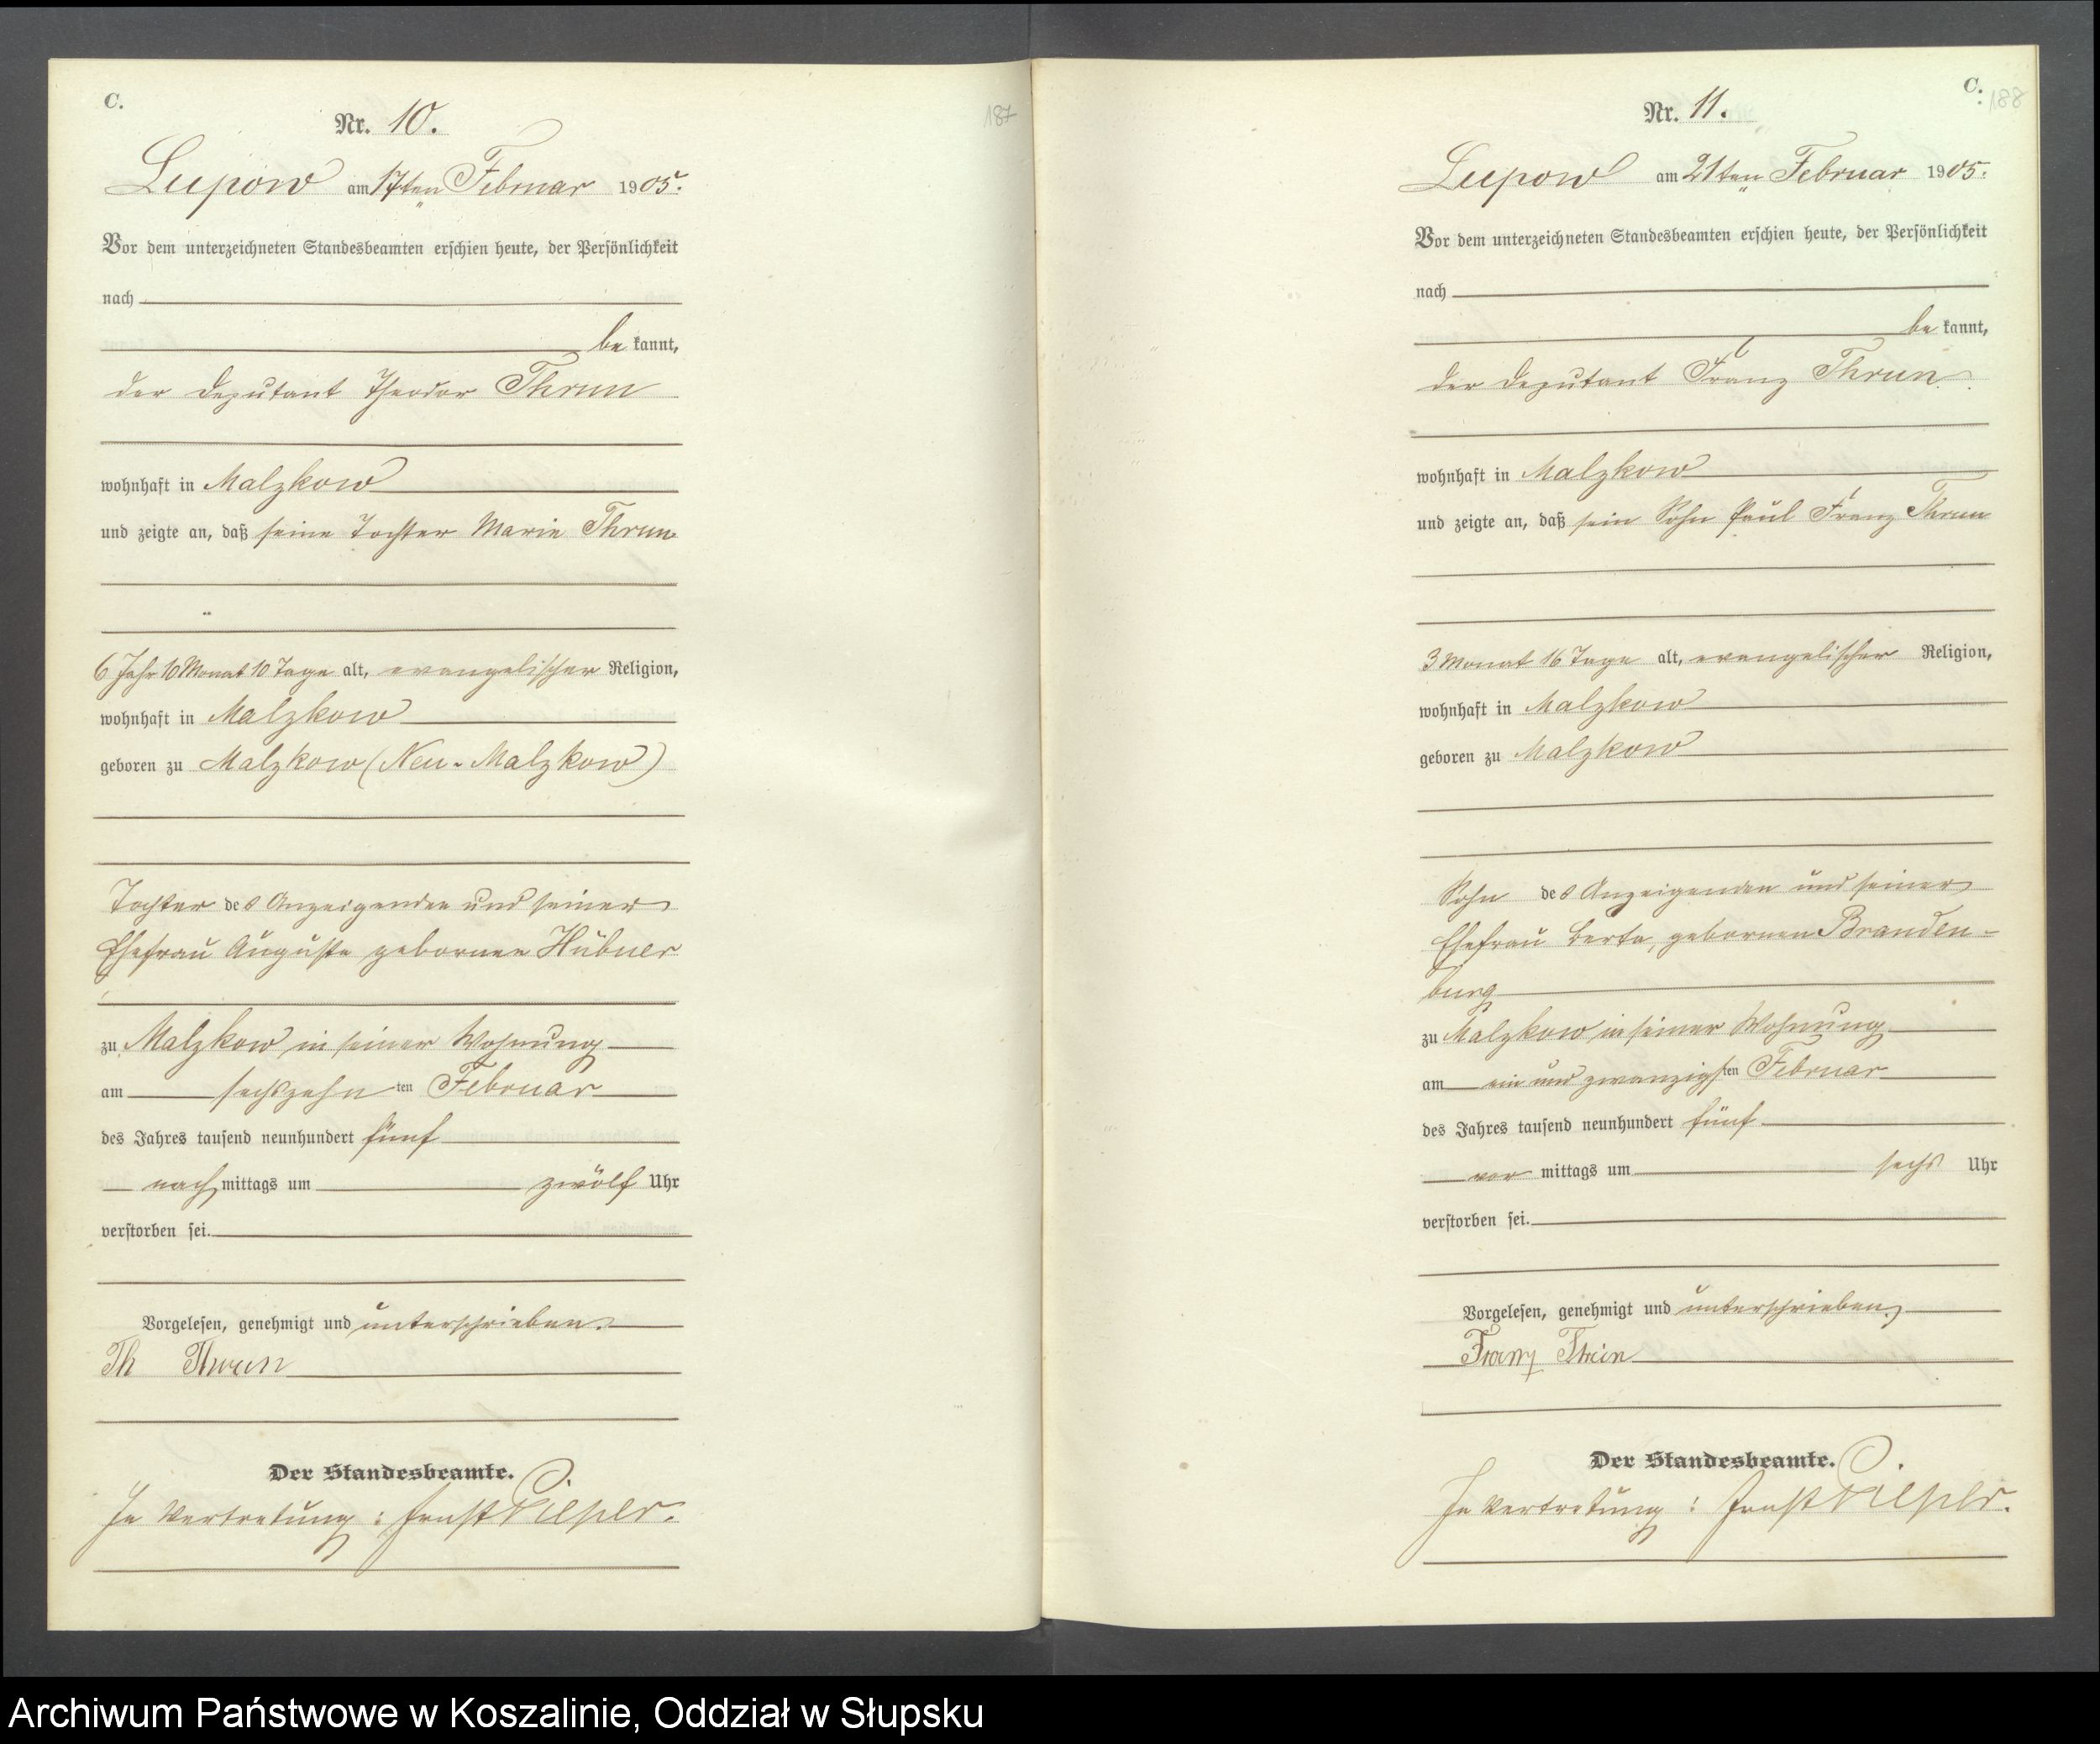 C.
Nr. 10.
187
Lupow am 17ten Februar 1905.
Vor dem unterzeichneten Standesbeamten erschien heute, der Persönlichkeit
nach
be kannt,
der Deputant Theodor Thrun
wohnhaft in Malzkow
und zeigte an, daß seine Tochter Marie Thrun
6 Jahr 10 Monat 10 Tage alt, evangelischer Religion,
wohnhaft in Malzkow
geboren zu Malzkow (Neu-Malzkow)
Tochter des Anzeigenden und seiner
Ehefrau Auguste gebornen Hübner
zu Malzkow in seiner Wohnung
am sechszehn ten Februar
des Jahres tausend neunhundert fünf
nach mittags um zwölf Uhr
verstorben sei.
Vorgelesen, genehmigt und unterschrieben.
Th Thrun
Der Standesbeamte.
In Vertretung: Ernst Pieper.
C.
188
Nr. 11.
Lupow am 21ten Februar 1905.
Vor dem unterzeichneten Standesbeamten erschien heute, der Persönlichkeit
nach
be kannt,
der Deputant Franz Thrun
wohnhaft in Malzkow
und zeigte an, daß sein Sohn Paul Franz Thrun
3 Monat 16 Tage alt, evangelischer Religion,
wohnhaft in Malzkow
geboren zu Malzkow
Sohn des Anzeigenden und seiner
Ehefrau Berta, gebornen Branden-
burg
zu Malzkow in seiner Wohnung
am ein und zwanzigsten Februar
des Jahres tausend neunhundert fünf
vor mittags um sechs Uhr
verstorben sei.
Vorgelesen, genehmigt und unterschrieben.
Franz Thrun
Der Standesbeamte.
In Vertretung: Ernst Pieper.
Archiwum Państwowe w Koszalinie, Oddział w Słupsku